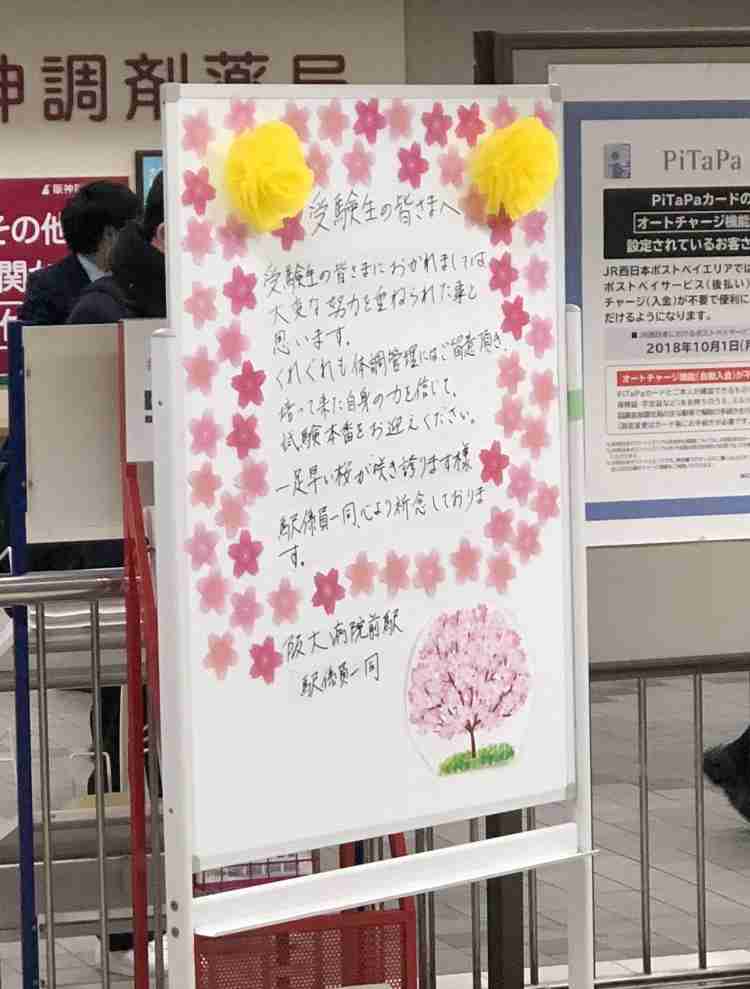 神調剤薬局
阪神
その他
関
受験生の皆さまへ
受験生の皆さまにおかれましては
大変な努力を重ねられた事と
思います。
くれぐれも体調管理にはご留意頂き、
培って来た自身の力を信じて、
試験本番をお迎えください。
一足早い桜が咲き誇ります様
駅係員一同心より祈念しておりま
す。
阪大病院前駅
駅係員一同
PiTaPa
PiTaPaカードの
オートチャージ機能
設定されているお客さ
JR西日本ポストペイエリアでは
ポストペイサービス(後払い)
チャージ(入金)が不要で便利に
だけるようになります。
2018年10月1日(月
オートチャージ機能(自動入金)が不